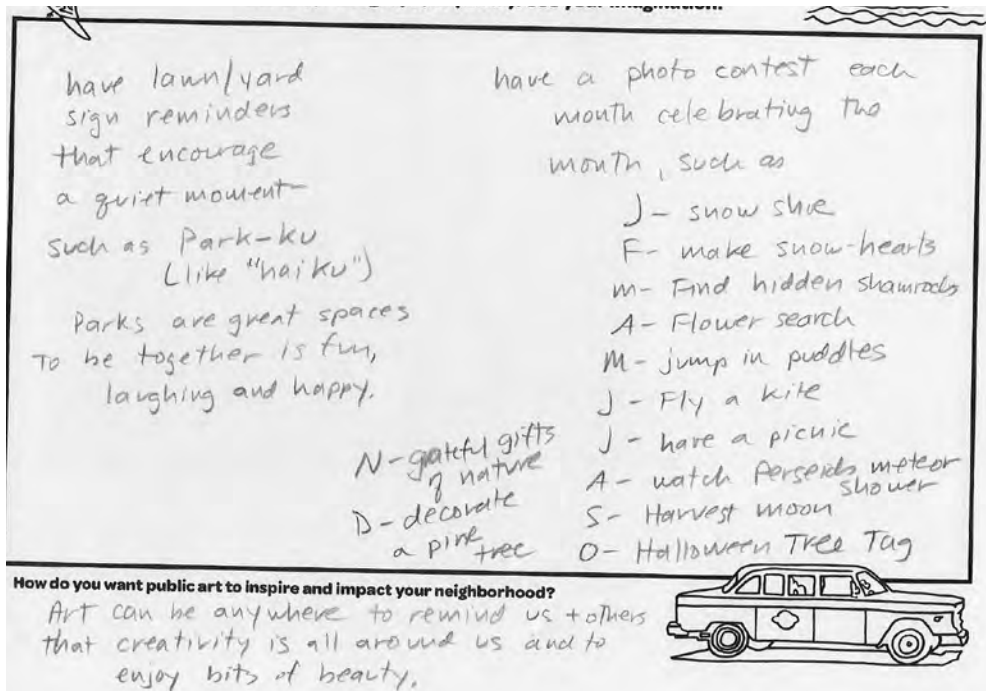 have lawn/yard
sign reminders
that encourage
a quiet moment-
such as Park-ku
(like "haiku")
Parks are great spaces
To be together is fun,
laughing and happy.
have a photo contest each
month celebrating the
month, such as
J- snow shoe
F- make snow-hearts
m- Find hidden shamrocks
A- Flower search
M- jump in puddles
J- Fly a kite
J- have a picnic
A- watch Perseids meteor
shower
S- Harvest moon
O- Halloween Tree Tag
N- grateful gifts
of nature
D- decorate
a pine
tree
How do you want public art to inspire and impact your neighborhood?
Art can be anywhere to remind us + others
that creativity is all around us and to
enjoy bits of beauty.